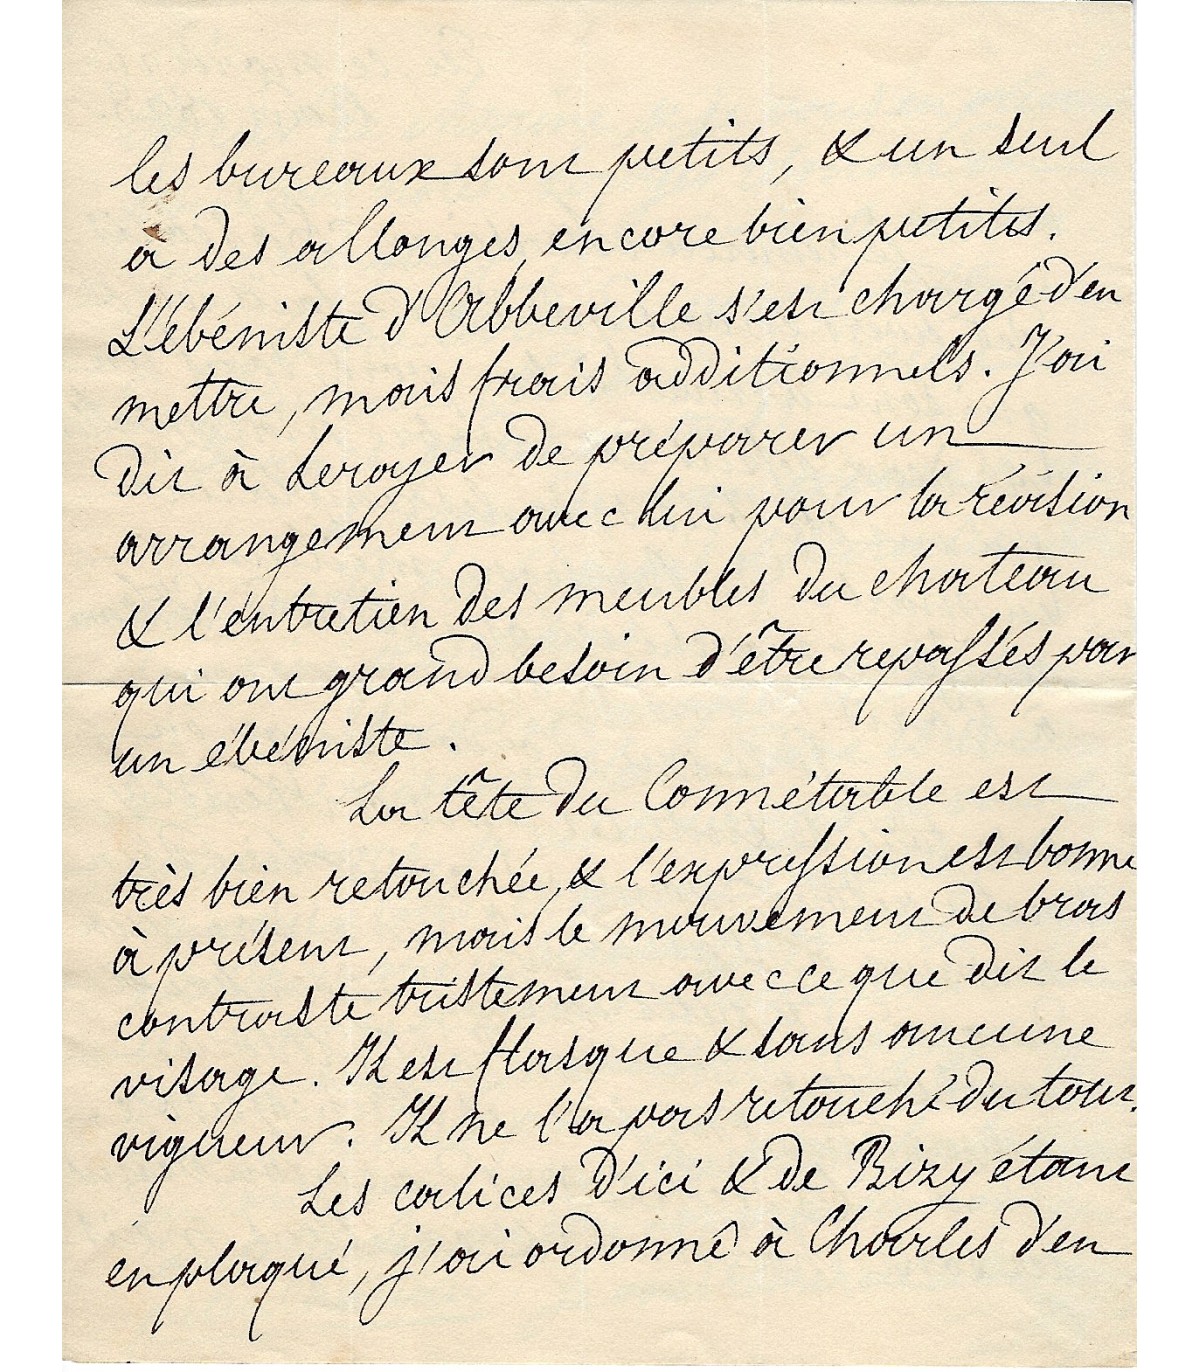 les bureaux sont petits, & un seul
à des allonges, encore bien petites.
L'ébéniste d'Abbeville s'est chargé d'en
mettre, mais frais additionnels. J'ai
dit à Leroyer de préparer un
arrangement avec lui pour la révision
& l'entretien des meubles du chateau
qui ont grand besoin d'être repassés par
un ébéniste.
La tête du Connétable est
très bien retouchée, & l'expression est bonne
à présent, mais le mouvement de bras
contraste tristement avec ce que dit le
visage. Il est flasque & sans aucune
vigueur. Il ne l'a pas retouché du tout.
Les calices d'ici & de Bizy étant
en plaqué, j'ai ordonné à Charles d'en